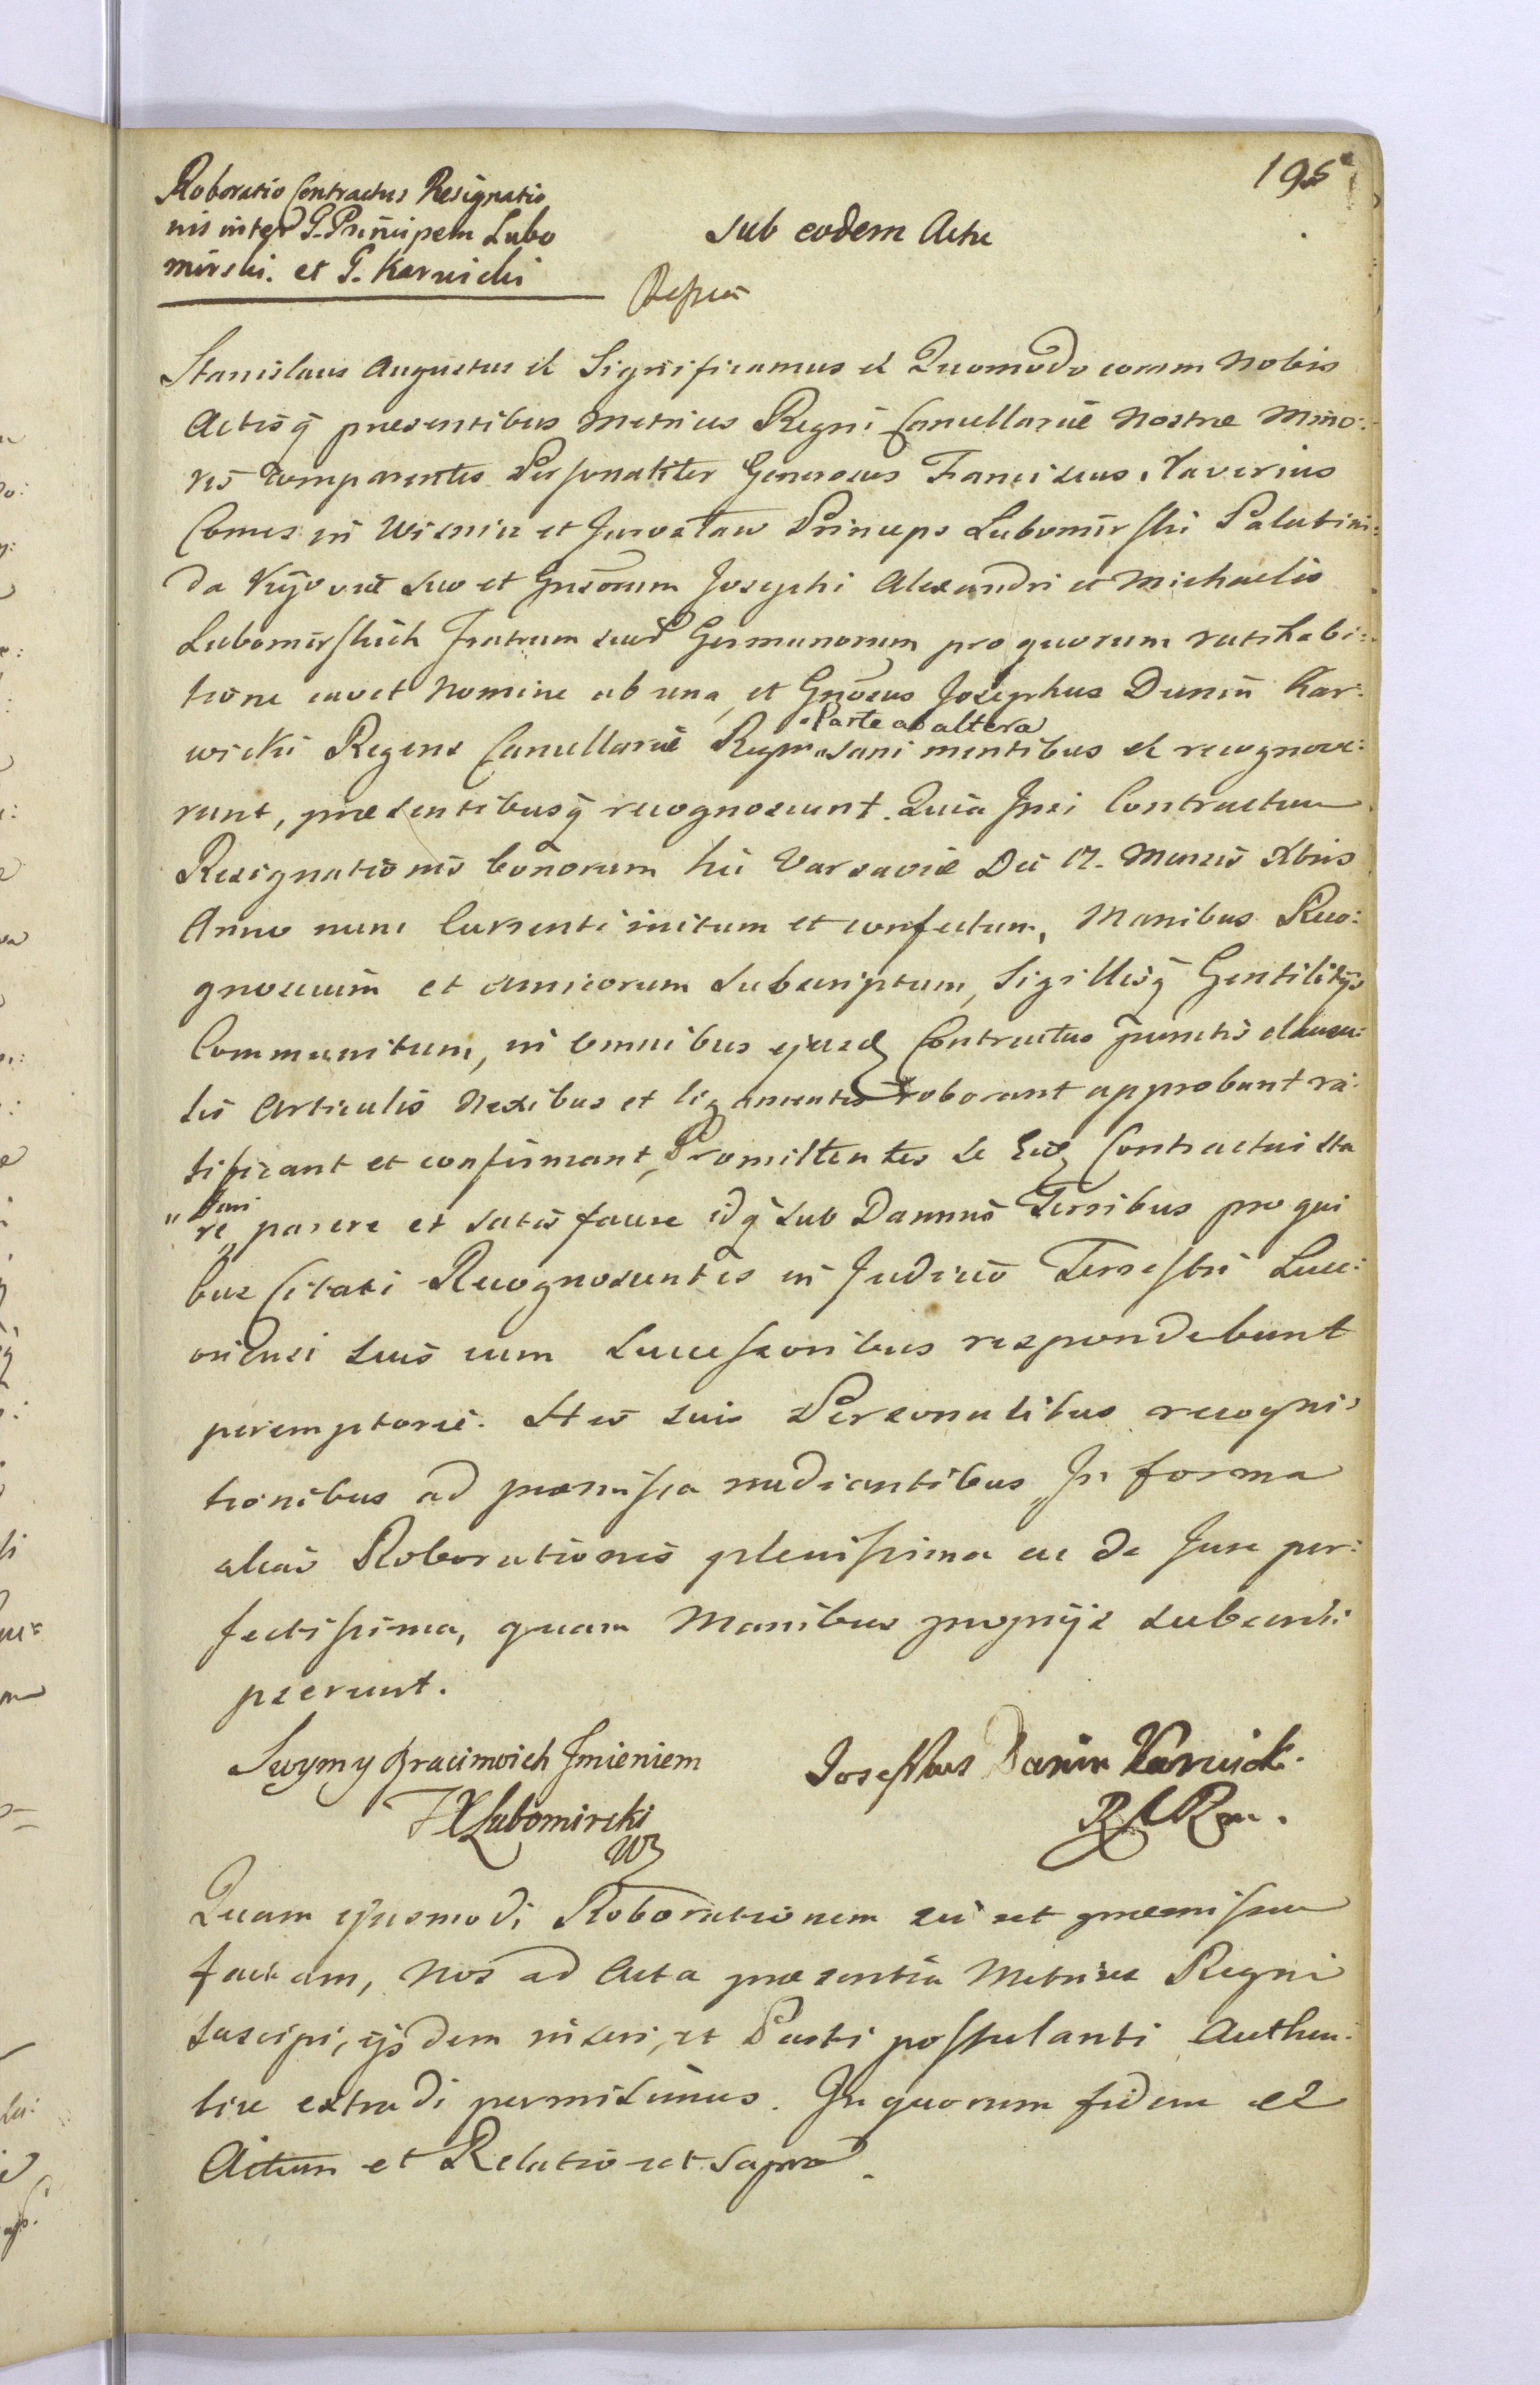 195
Roboratio Contractus Resignatio
nis inter G. Principem Lubo
mirski. et G. Karwicki
sub eodem Actu
Stanislaus Augustus et Significamus et Quomodo coram Nobis
Actisq̃ praesentibus Metrices Regni Cancellariæ Nostræ Mino:
ris Comparentes Personaliter Generosus Franciscus Xaverius
Comes in Wisnicz et Jaroslaw Princeps Lubomirski Palatini:
da Kijoviæ suo et Gnsorum Josephi Alexandri et Michaelis
Lubomirskich Fratrum suor̃ Germanorum pro quorum ratihabi:
tione cavet Nomine ab una, et Gnõsus Josephus Dunin Kar:
wicki Regens Cancellariæ Regni Parte ab altera sani mentibus et recognove:
runt, præsentibusq̃ recognoscunt. Quia Ipsi Contractum
Resignationis bonorum hic Varsaviæ Die 17. Mensis Xbris
Anno nunc Currenti initum et confectum, Manibus Reco:
gnoscentium et amicorum Subscriptum, Sigillisq̃ Gentilitijs
Communitum, in Omnibus ejusdẽ Contractus punctis clausu:
lis Articulis Nexibus et ligamentis roborant approbant ra:
tificant et confirmant, Promittentes se Eidẽ Contractui sta
re, parere et satisfacere idq̃ sub Damnis Terribus pro qui
bus Citati Recognoscentes in Judicio Terrestri Luce:
oriensi suis cum Successoribus respondebunt
peremptorie. His suis Personalibus recogni:
tionibus ad præmissa mediantibus In forma
alias Roborationis plenissima ac de Jure per:
fectissima, quam Manibus proprijs subscri:
pserunt.
Swym y Braci moich Imieniem
FX Lubomirski
Josephus Dunin Karwick.
Quam ejusmodi Roborationem uti ut præmissum
factam, Nos ad Acta præsentia Metrices Regni
suscipi, ijsdem inseri, et Parti postulanti Authen:
tice extradi permisimus. In quorum fidem et
Actum et Relatio ut Supra.